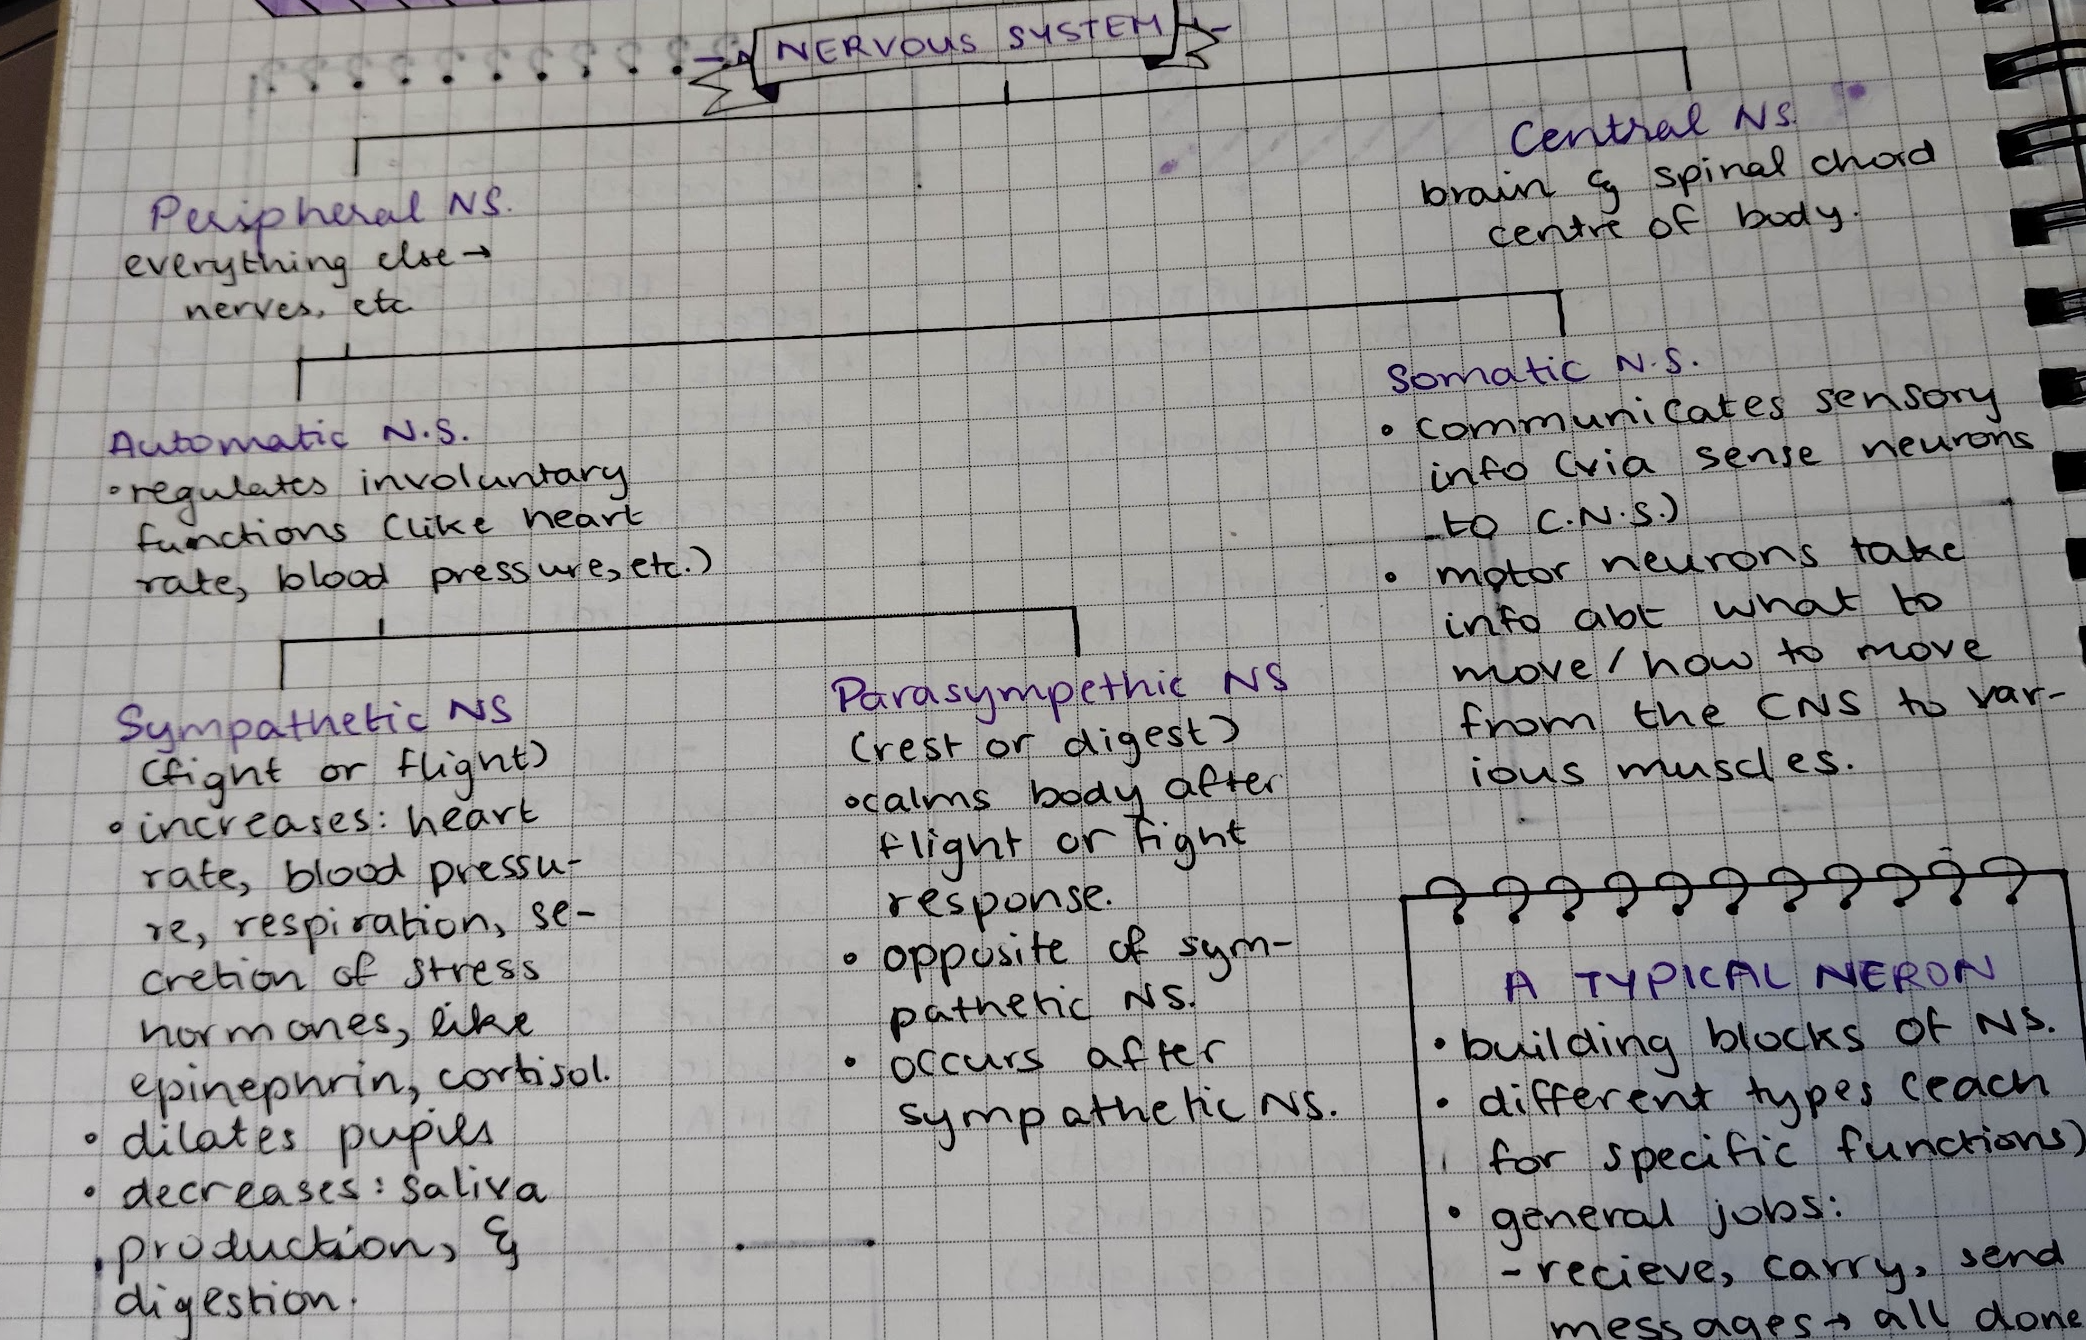 NERVOUS SYSTEM
Central NS.
brain & spinal chord
centre of body.
Peripheral NS.
everything else →
nerves, etc
Automatic N.S.
• regulates involuntary
functions (like heart
rate, blood pressure, etc.)
Somatic N.S.
• communicates sensory
info (via sense neurons
to C.N.S.)
• motor neurons take
info abt what to
move / how to move
from the CNS to var-
ious muscles.
Sympathetic NS
(fight or flight)
• increases: heart
rate, blood pressu-
re, respiration, se-
cretion of stress
hormones, like
epinephrin, cortisol.
• dilates pupils
• decreases: saliva
production, &
digestion.
Parasympethic NS
(rest or digest)
• calms body after
flight or fight
response.
• opposite of sym-
pathetic NS.
• occurs after
sympathetic NS.
A TYPICAL NERON
• building blocks of NS.
• different types (each
for specific functions)
• general jobs:
- recieve, carry, send
messages → all done